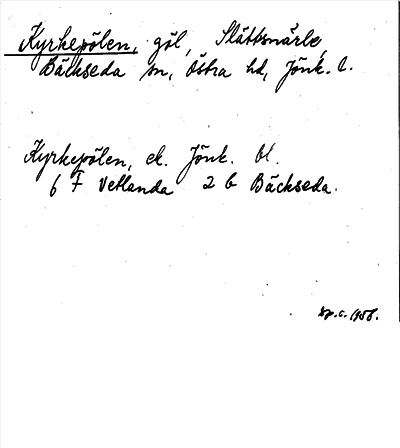 Kyrkepölen, göl, Slättsnärle,
Bäckseda sn, Östra hd, Jönk. l.
Kyrkepölen, ek. Jönk. bl.
6 F Vetlanda 2 b Bäckseda.
1958.